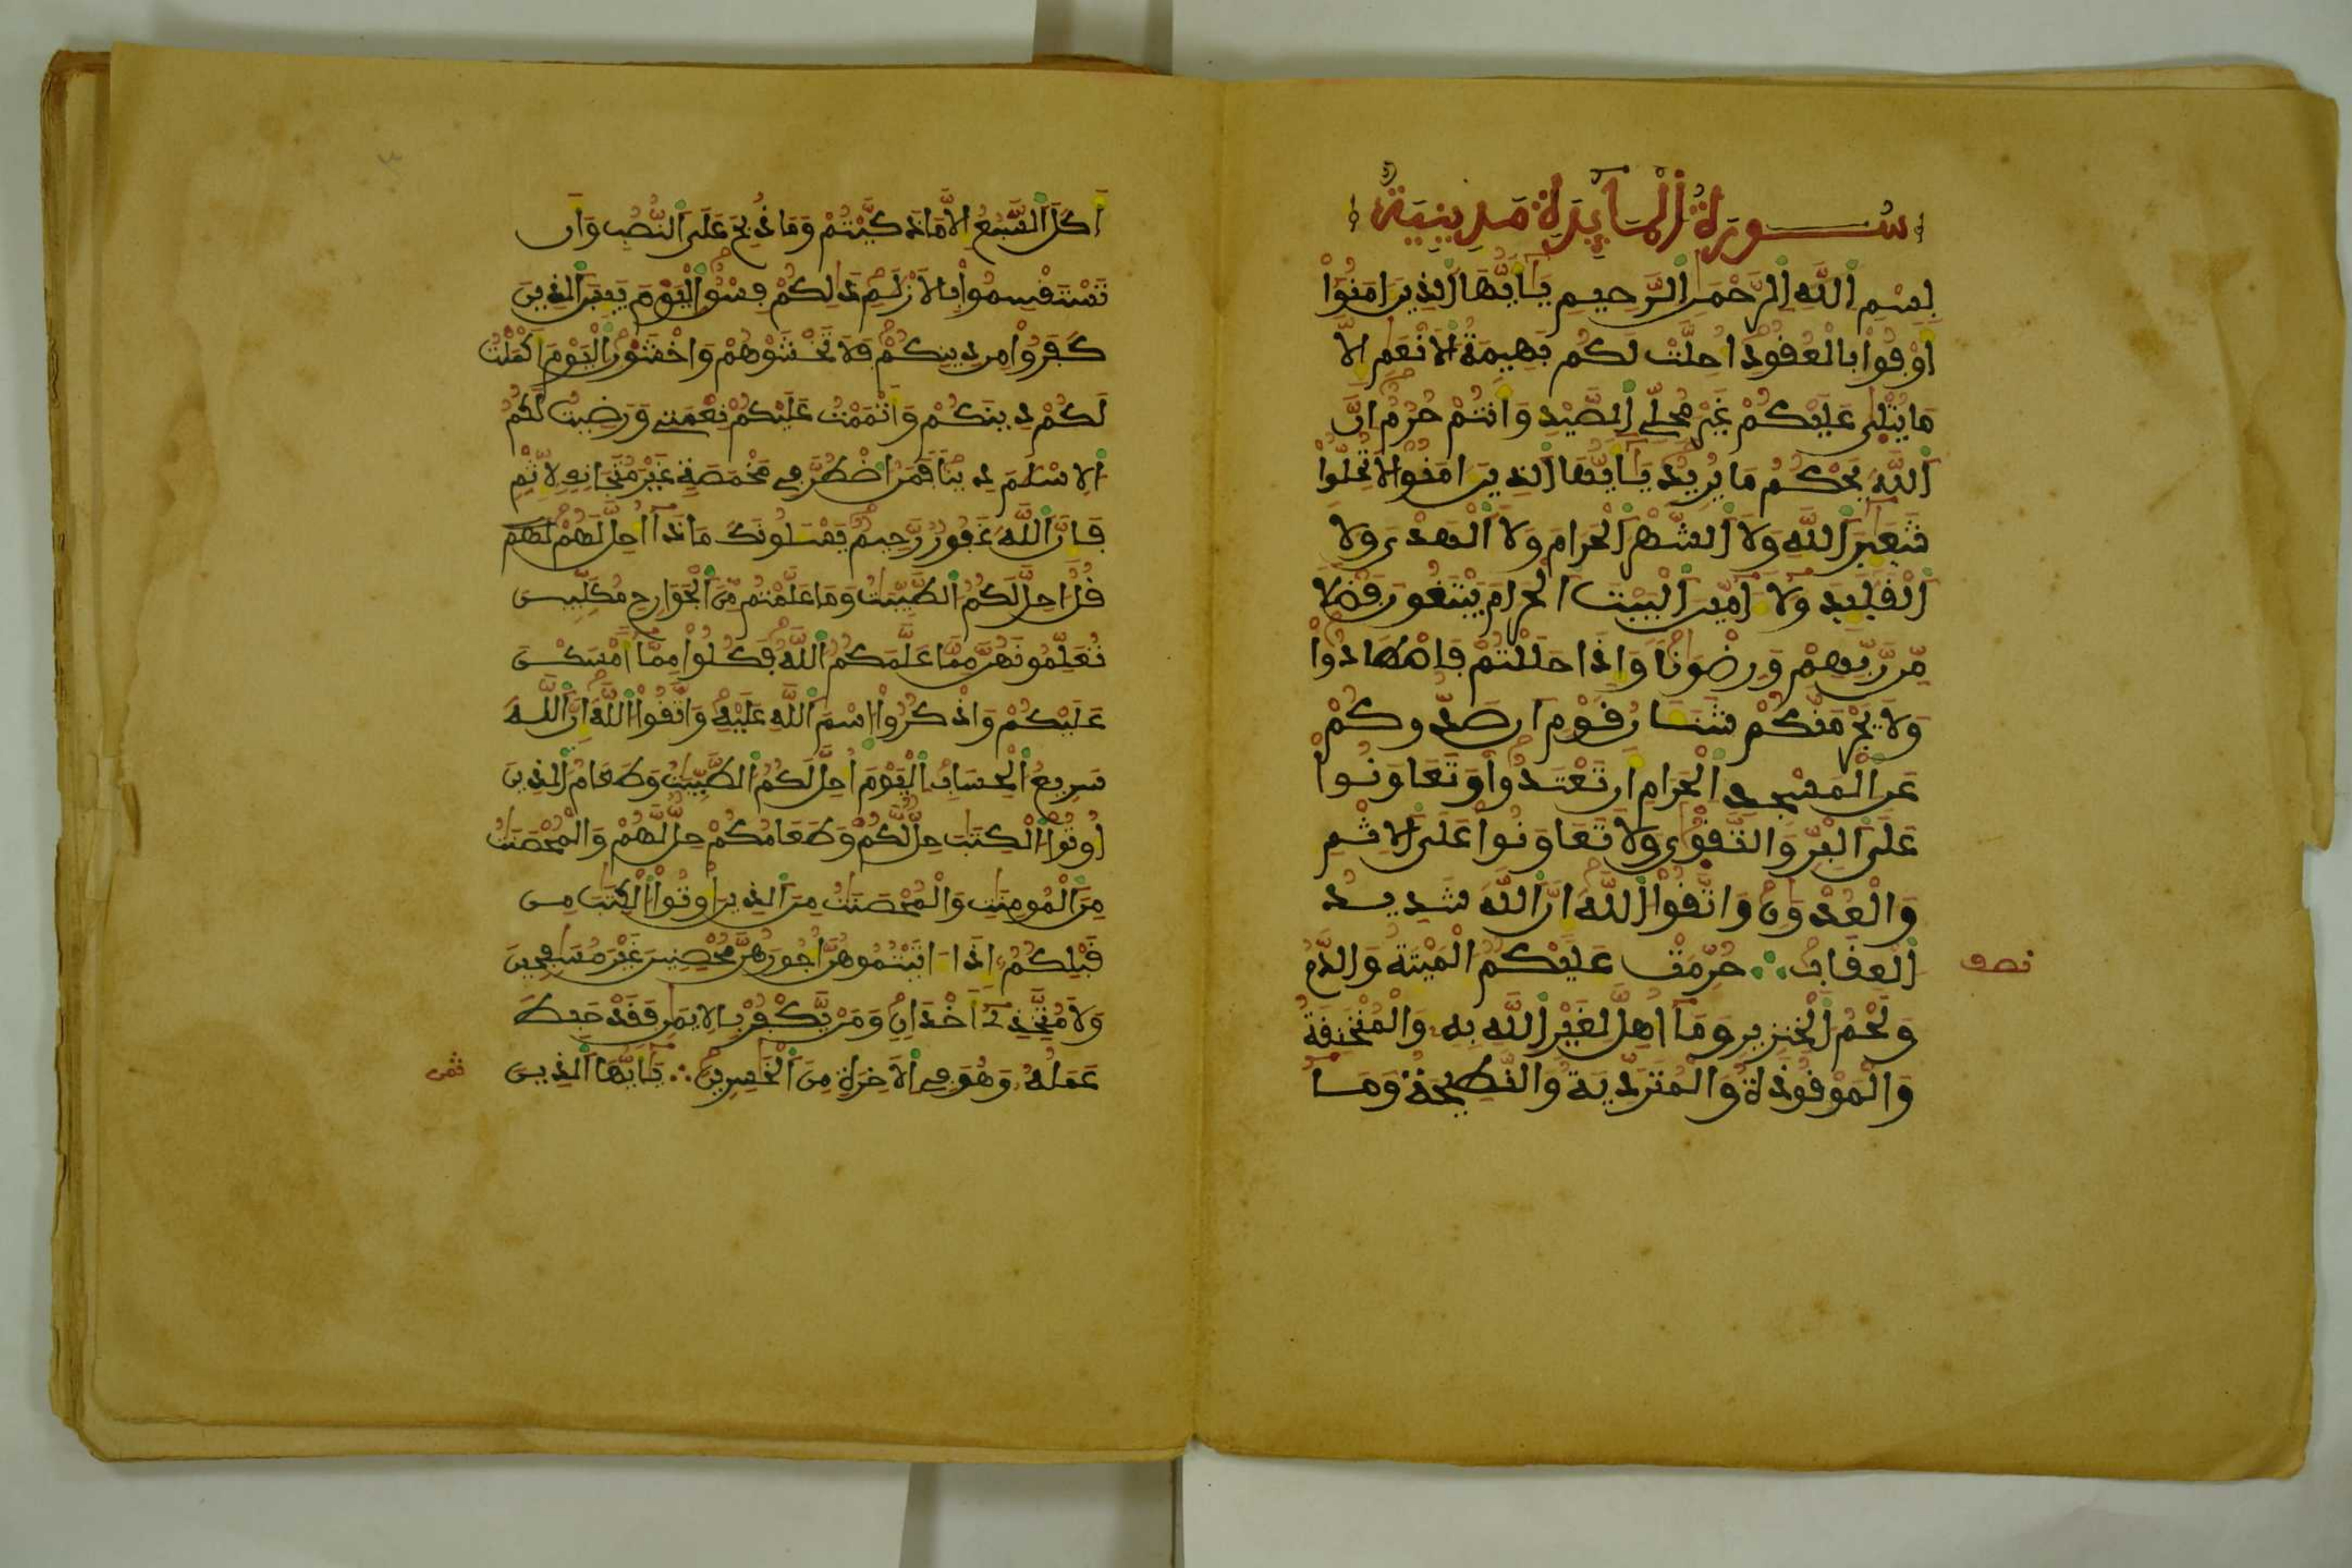 سُورَةُ الْمَآيِدَةِ مَدِينِيَةٌ
بِسْمِ اللَّهِ الرَّحْمَٰنِ الرَّحِيمِ يَٰٓأَيُّهَا الَّذِينَ ءَامَنُوٓاْ
أَوْفُواْ بِالْعُقُودِ أُحِلَّتْ لَكُم بَهِيمَةُ الْأَنْعَٰمِ إِلَّا
مَا يُتْلَىٰ عَلَيْكُمْ غَيْرَ مُحِلِّي الصَّيْدِ وَأَنتُمْ حُرُمٌ إِنَّ
اللَّهَ يَحْكُمُ مَا يُرِيدُ يَٰٓأَيُّهَا الَّذِينَ ءَامَنُواْ لَا تُحِلُّواْ
شَعَٰٓئِرَ اللَّهِ وَلَا الشَّهْرَ الْحَرَامَ وَلَا الْهَدْيَ وَلَا
الْقَلَٰٓئِدَ وَلَآ ءَآمِّينَ الْبَيْتَ الْحَرَامَ يَبْتَغُونَ فَضْلًا
مِّن رَّبِّهِمْ وَرِضْوَٰنًا وَإِذَا حَلَلْتُمْ فَاصْطَادُواْ
وَلَا يَجْرِمَنَّكُمْ شَنَـَٔانُ قَوْمٍ أَن صَدُّوكُمْ
عَنِ الْمَسْجِدِ الْحَرَامِ أَن تَعْتَدُواْ وَتَعَاوَنُواْ
عَلَى الْبِرِّ وَالتَّقْوَىٰ وَلَا تَعَاوَنُواْ عَلَى الْإِثْمِ
وَالْعُدْوَٰنِ وَاتَّقُواْ اللَّهَ إِنَّ اللَّهَ شَدِيدُ
الْعِقَابِ ∴ حُرِّمَتْ عَلَيْكُمُ الْمَيْتَةُ وَالدَّمُ
نصف
وَلَحْمُ الْخِنزِيرِ وَمَآ أُهِلَّ لِغَيْرِ اللَّهِ بِهِ وَالْمُنْخَنِقَةُ
وَالْمَوْقُوذَةُ وَالْمُتَرَدِّيَةُ وَالنَّطِيحَةُ وَمَآ
أَكَلَ السَّبُعُ إِلَّا مَا ذَكَّيْتُمْ وَمَا ذُبِحَ عَلَى النُّصُبِ وَأَن
تَسْتَقْسِمُواْ بِالْأَزْلَٰمِ ذَٰلِكُمْ فِسْقٌ الْيَوْمَ يَئِسَ الَّذِينَ
كَفَرُواْ مِن دِينِكُمْ فَلَا تَخْشَوْهُمْ وَاخْشَوْنِ الْيَوْمَ أَكْمَلْتُ
لَكُمْ دِينَكُمْ وَأَتْمَمْتُ عَلَيْكُمْ نِعْمَتِي وَرَضِيتُ لَكُمُ
الْإِسْلَٰمَ دِينًا فَمَنُ اضْطُرَّ فِي مَخْمَصَةٍ غَيْرَ مُتَجَانِفٍ لِّإِثْمٍ
فَإِنَّ اللَّهَ غَفُورٌ رَّحِيمٌ يَسْـَٔلُونَكَ مَاذَآ أُحِلَّ لَهُمْ لَهُمْ
قُلْ أُحِلَّ لَكُمُ الطَّيِّبَٰتُ وَمَا عَلَّمْتُم مِّنَ الْجَوَارِحِ مُكَلِّبِينَ
تُعَلِّمُونَهُنَّ مِمَّا عَلَّمَكُمُ اللَّهُ فَكُلُواْ مِمَّآ أَمْسَكْنَ
عَلَيْكُمْ وَاذْكُرُواْ اسْمَ اللَّهِ عَلَيْهِ وَاتَّقُواْ اللَّهَ إِنَّ اللَّهَ
سَرِيعُ الْحِسَابِ الْيَوْمَ أُحِلَّ لَكُمُ الطَّيِّبَٰتُ وَطَعَامُ الَّذِينَ
أُوتُواْ الْكِتَٰبَ حِلٌّ لَّكُمْ وَطَعَامُكُمْ حِلٌّ لَّهُمْ وَالْمُحْصَنَٰتُ
مِنَ الْمُومِنَٰتِ وَالْمُحْصَنَٰتُ مِنَ الَّذِينَ أُوتُواْ الْكِتَٰبَ مِن
قَبْلِكُمُ إِذَآ ءَاتَيْتُمُوهُنَّ أُجُورَهُنَّ مُحْصِنِينَ غَيْرَ مُسَٰفِحِينَ
وَلَا مُتَّخِذِيٓ أَخْدَانٍ وَمَن يَّكْفُرْ بِالْإِيمَٰنِ فَقَدْ حَبِطَ
عَمَلُهُ وَهُوَ فِي الْأَخِرَةِ مِنَ الْخَٰسِرِينَ ∴ يَٰٓأَيُّهَا الَّذِينَ
ثمن